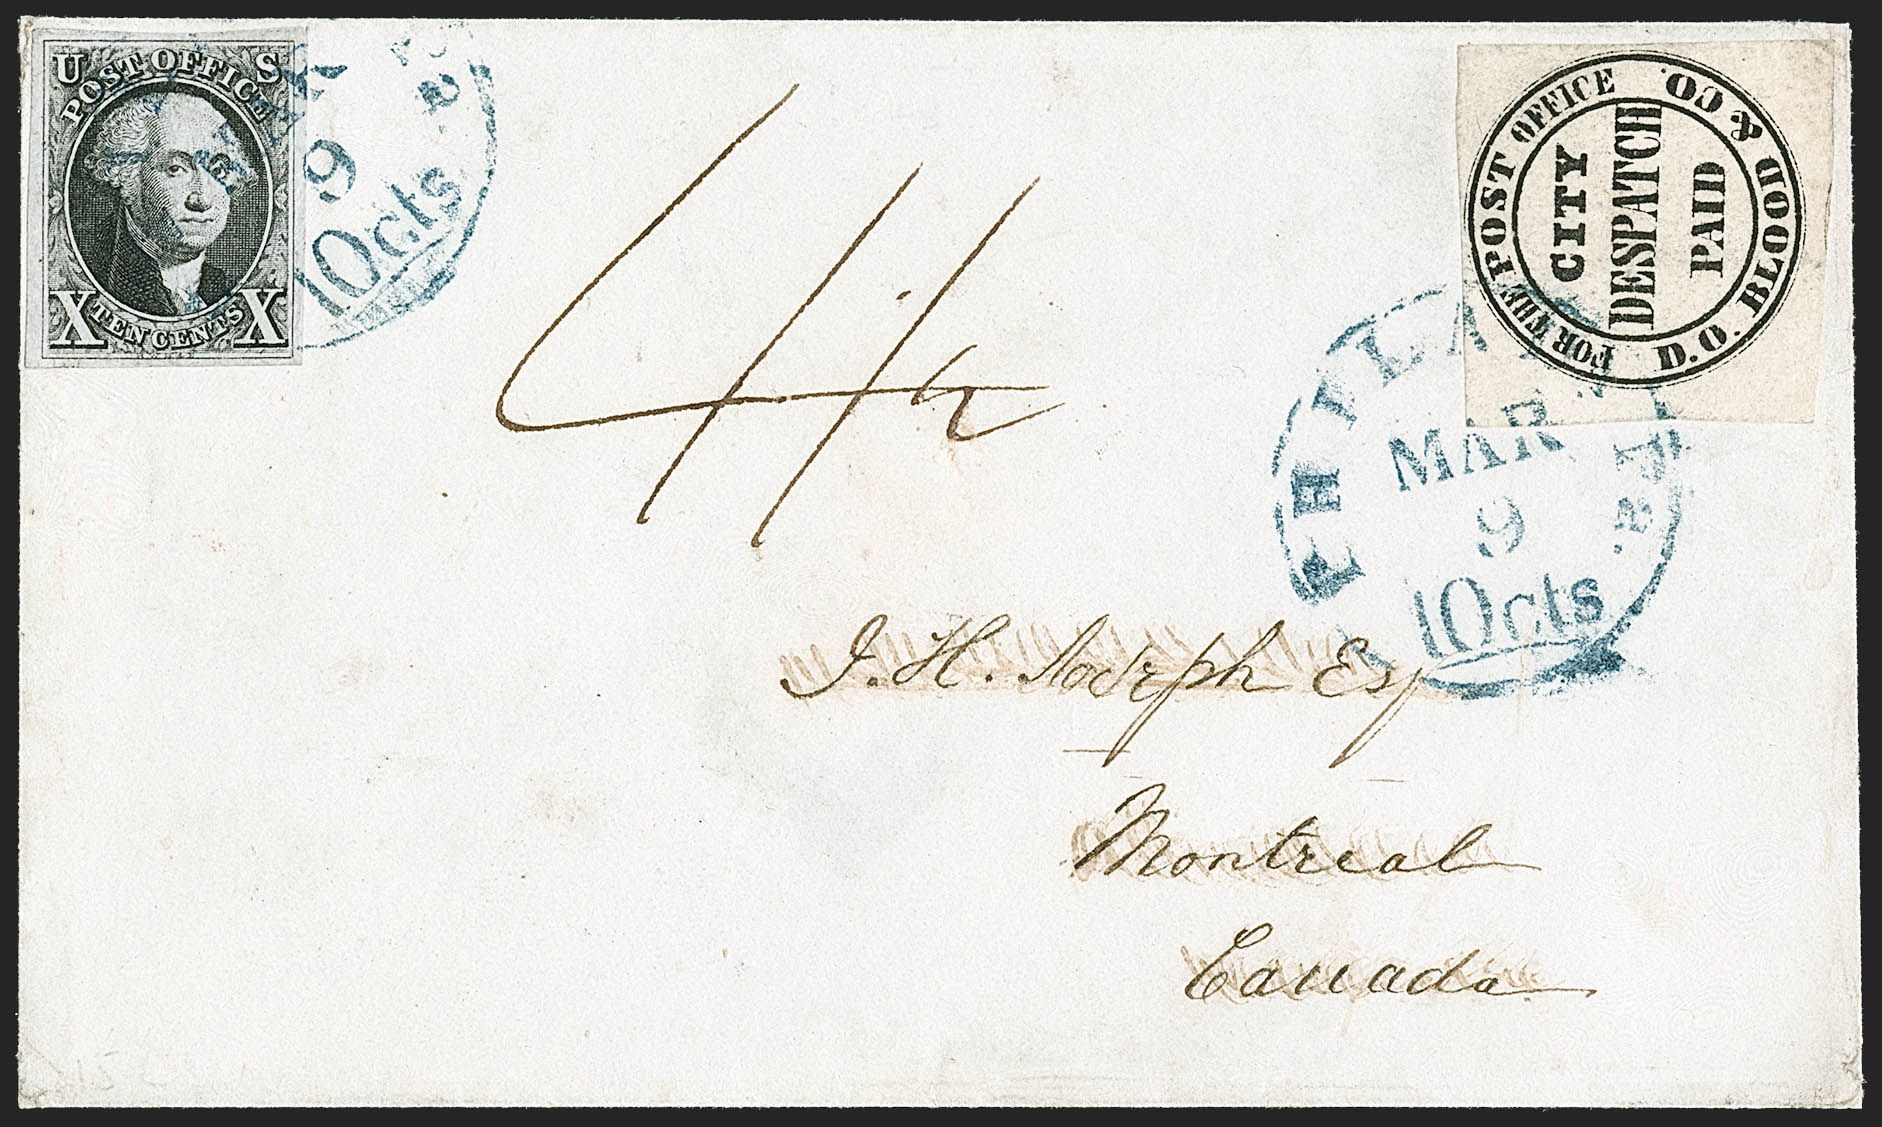 U S
POST OFFICE
X TEN CENTS X
MAR
9
10cts
4½
FOR THE POST OFFICE
CITY
DESPATCH
PAID
D.O. BLOOD & CO.
PHILADA Pa.
MAR
9
10cts
J. H. Joseph Esq
Montreal
Canada